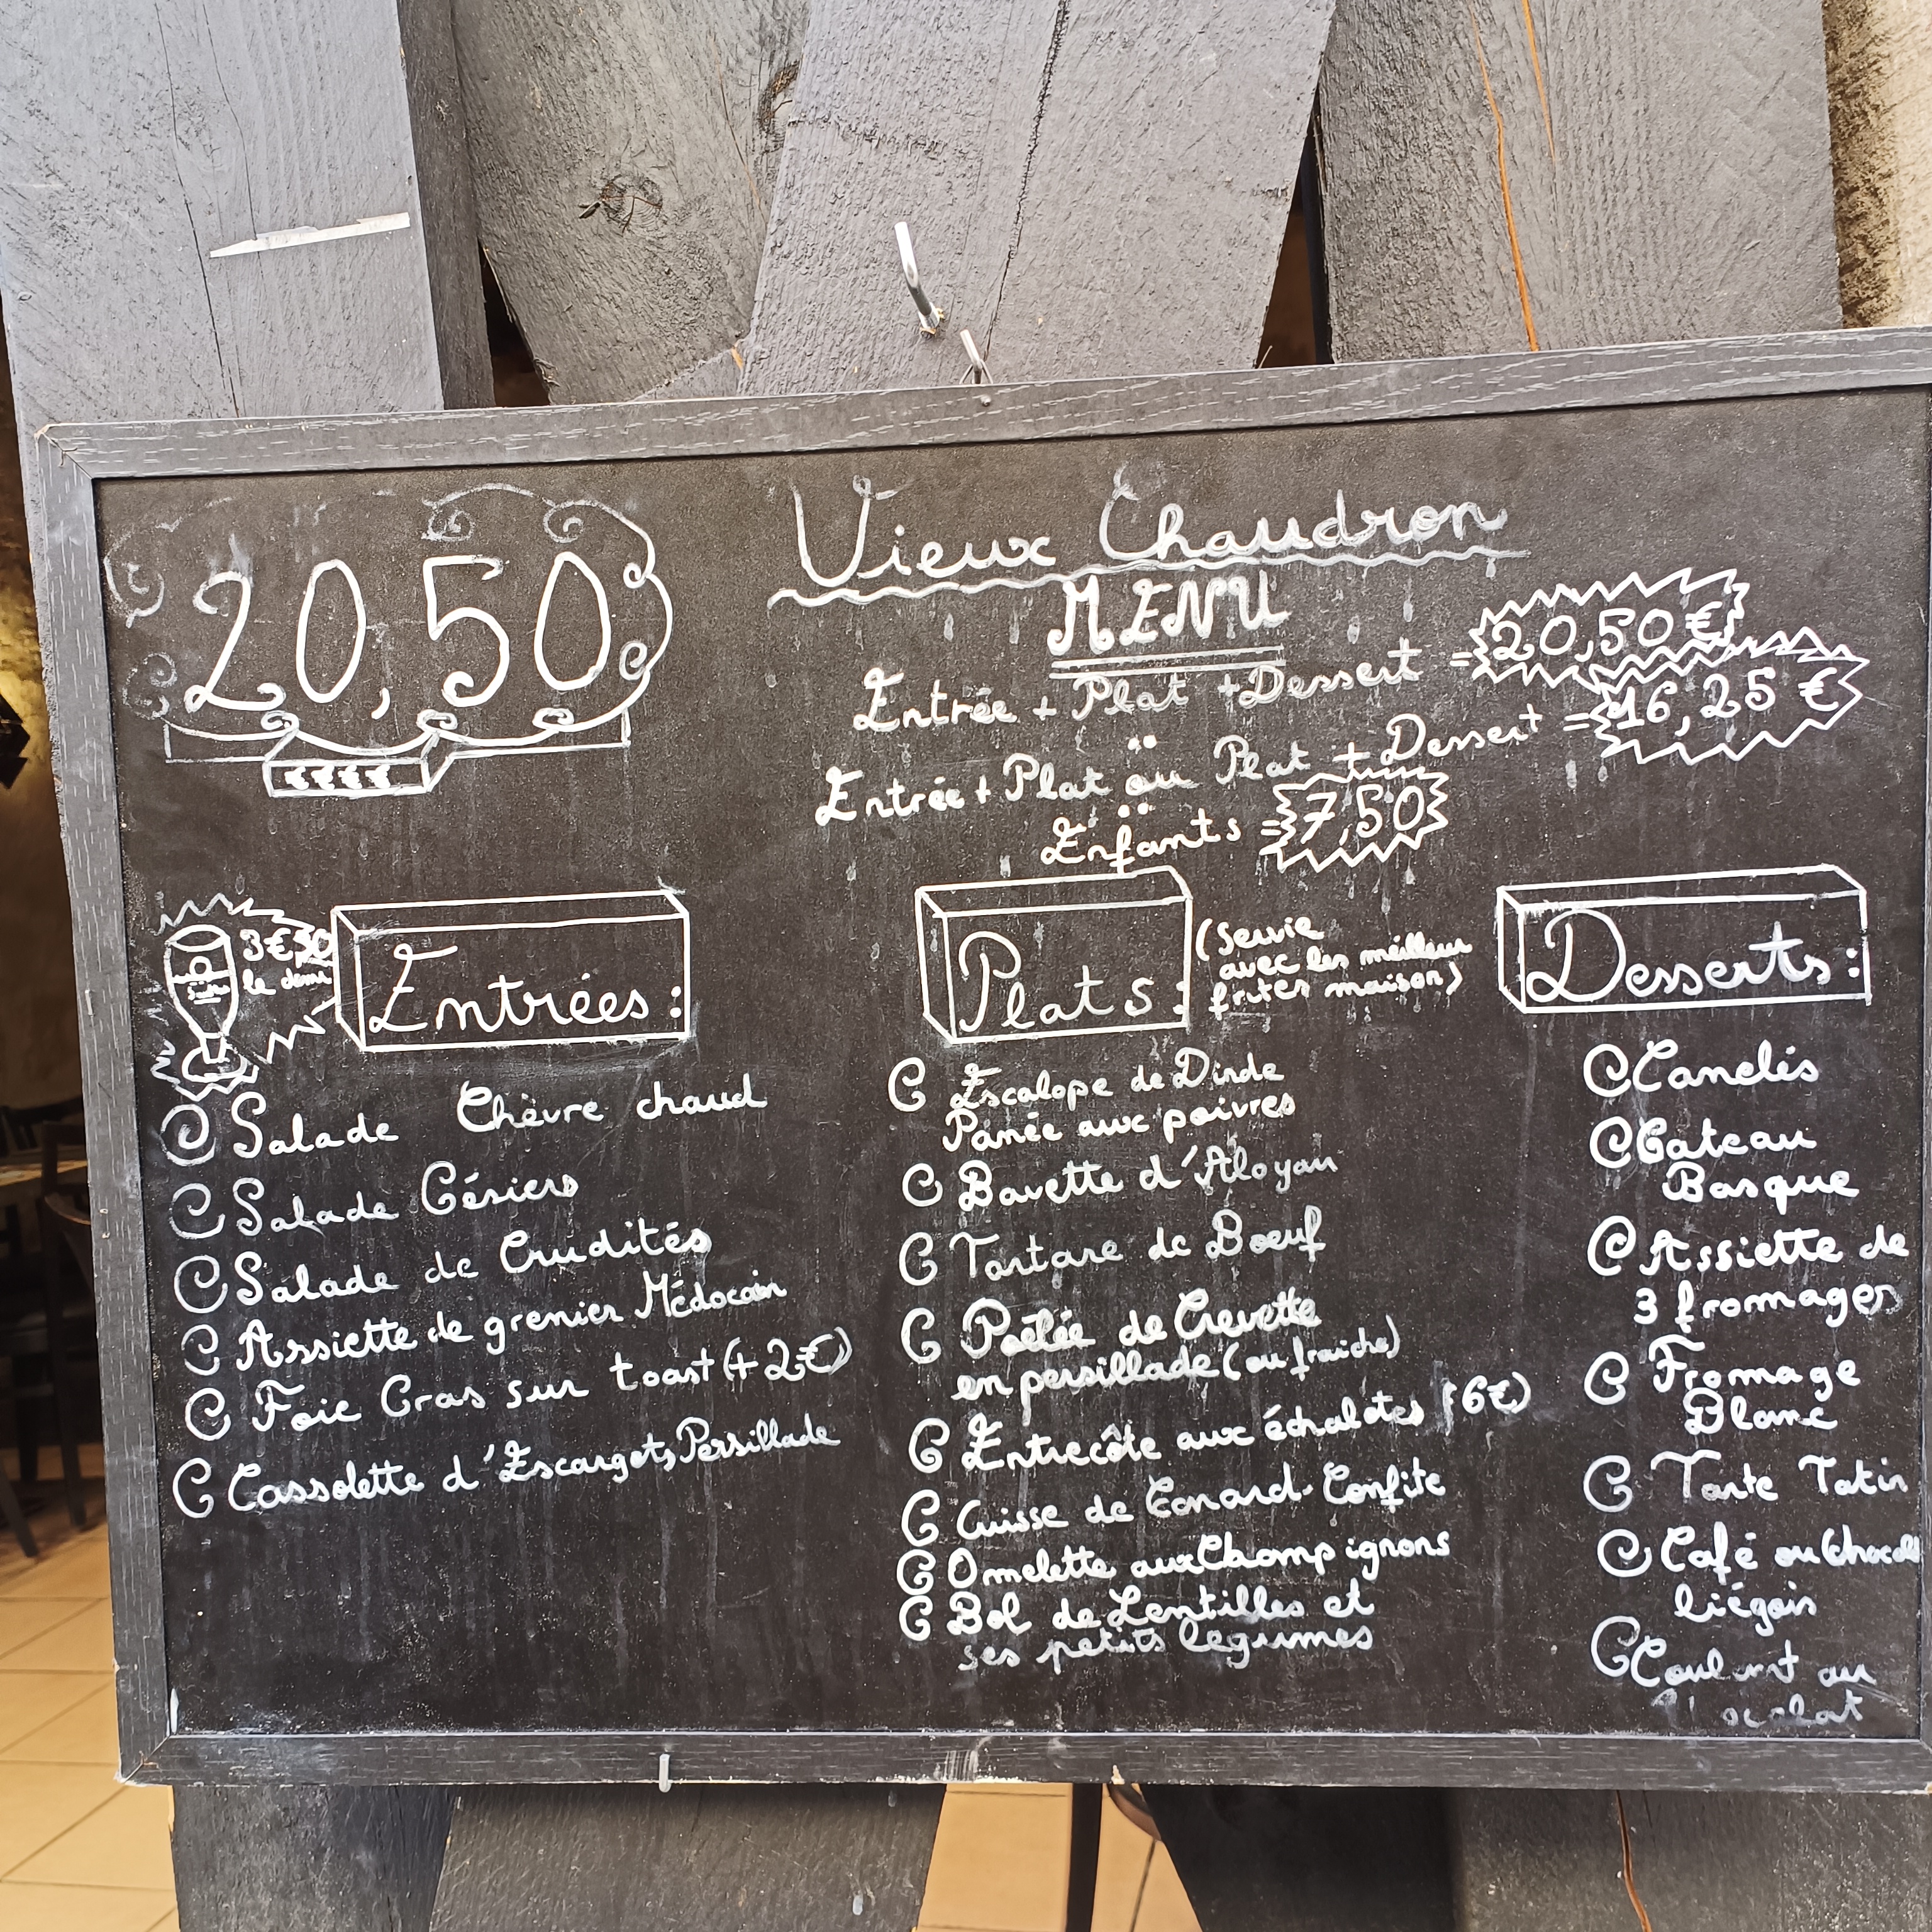 20,50
€€€€
Vieux Chaudron
MENU
Entrée + Plat + Dessert = 20,50 €
Entrée + Plat ou Plat + Dessert = 16,25 €
Enfants = 7,50
3€50
le demi
Entrées :
Salade Chèvre chaud
Salade Gésiers
Salade de Crudités
Assiette de grenier Médocain
Foie Gras sur toast (+ 2€)
Cassolette d'Escargots Persillade
Plats :
(Servie
avec les meilleur
frites maison)
Escalope de Dinde
Panée aux poivres
Bavette d'Aloyau
Tartare de Boeuf
Poêlée de Crevette
en persillade (ou fraiche)
Entrecôte aux échalotes (6€)
Cuisse de Canard Confite
Omelette aux Champignons
Bol de Lentilles et
ses petits légumes
Desserts :
Canelés
Gateau
Basque
Assiette de
3 fromages
Fromage
Blanc
Tarte Tatin
Café ou
liégois
au